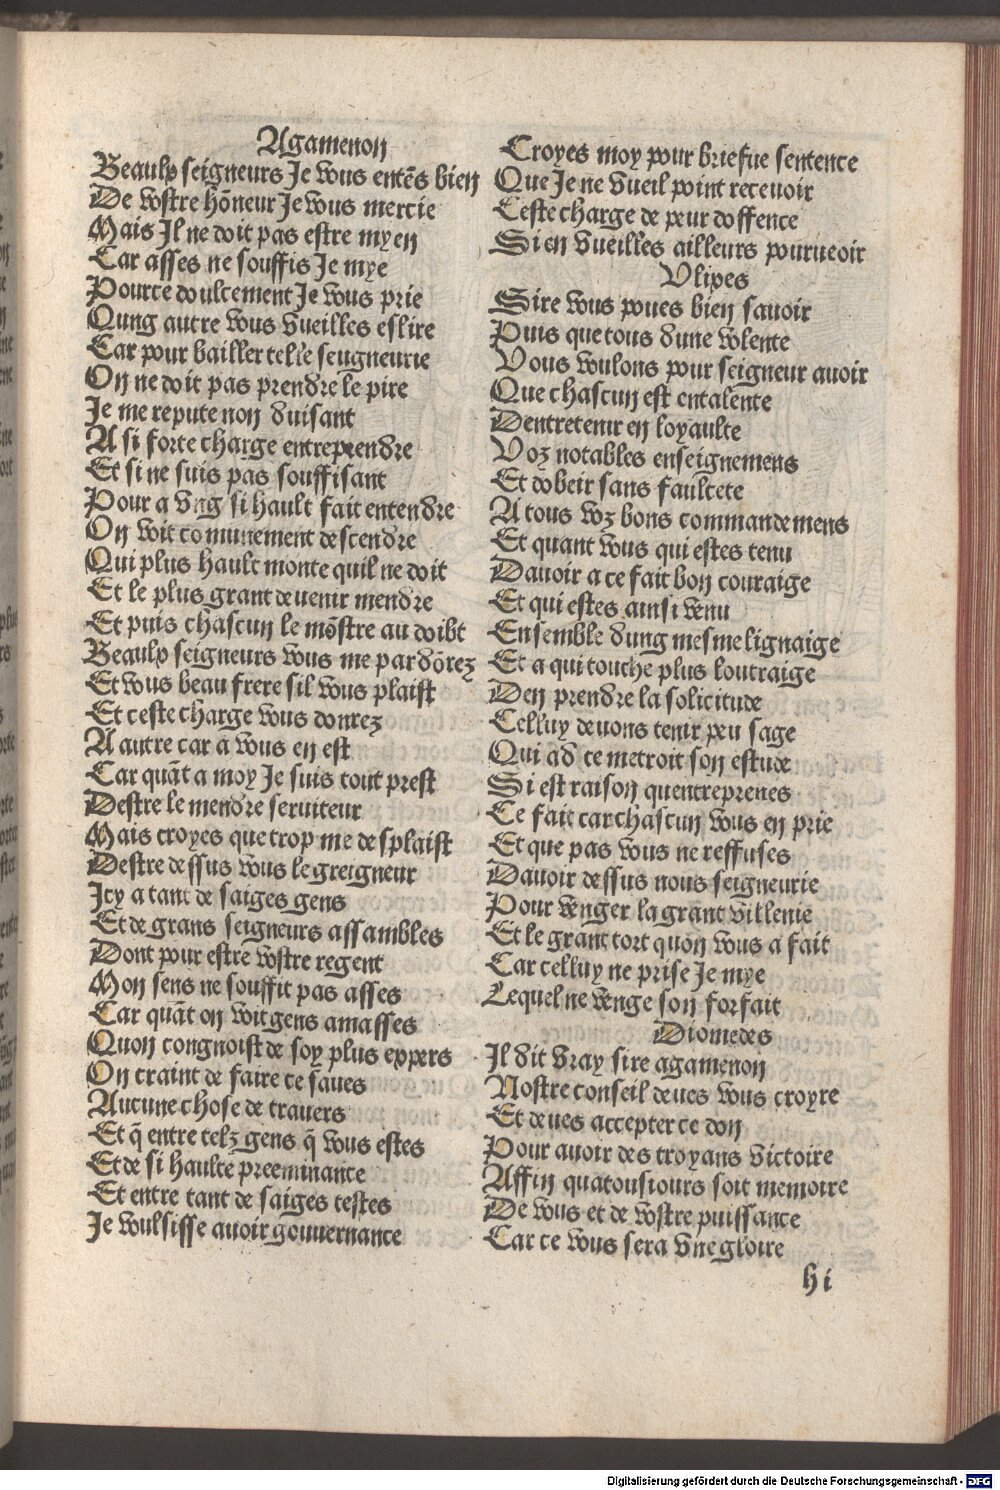 Agamenon
Beaulx seigneurs Je vous entēs bien
De vostre hōneur Je vous mercie
Mais Il ne doit pas estre myen
Car asses ne souffis Je mye
Pource doulcement Je vous prie
Qung autre vous vueilles eslire
Car pour bailler telle seugneurie
On ne doit pas prendre le pire
Je me repute non duisant
A si forte charge entreprendre
Et si ne suis pas souffisant
Pour a vng si hault fait entendre
On voit communement descendre
Qui plus hault monte quil ne doit
Et le plus grant deuenir mendre
Et puis chascun le mōstre au doibt
Beaulx seigneurs vous me pardōrez
Et vous beau frere sil vous plaist
Et ceste charge vous donrez
A autre car a vous en est
Car quāt a moy Je suis tout prest
Destre le mendre seruiteur
Mais croyes que trop me desplaist
Destre dessus vous le greigneur
Icy a tant de saiges gens
Et de grans seigneurs assambles
Dont pour estre vostre regent
Mon sens ne souffit pas asses
Car quāt on voit gens amasses
Quon congnoist de soy plus expers
On craint de faire ce saues
Aucune chose de trauers
Et q̄ entre telz gens q̄ vous estes
Et de si haulte preeminance
Et entre tant de saiges testes
Je voulsisse auoir gouuernance
Croyes moy pour briefue sentence
Que Je ne vueil point receuoir
Ceste charge de peur doffence
Si en vueilles ailleurs pourueoir
Vlixes
Sire vous poues bien sauoir
Puis que tous dune volente
Vous voulons pour seigneur auoir
Que chascun est entalente
Dentretenir en loyaulte
Voz notables enseignemens
Et dobeir sans faultete
A tous voz bons commandemens
Et quant vous qui estes tenu
Dauoir a ce fait bon couraige
Et qui estes ainsi venu
Ensemble dung mesme lignaige
Et a qui touche plus loutraige
Den prendre la solicitude
Celluy deuons tenir peu sage
Qui ad ce metroit son estude
Si est raison quentreprenes
Ce fait car chascun vous en prie
Et que pas vous ne reffuses
Dauoir dessus nous seigneurie
Pour venger la grant villenie
Et le grant tort quon vous a fait
Car celluy ne prise Je mye
Lequel ne venge son forfait
Diomedes
Il dit vray sire agamenon
Nostre conseil deues vous croyre
Et deues accepter ce don
Pour auoir des troyans victoire
Affin quatousiours soit memoire
De vous et de vostre puissance
Car ce vous sera vne gloire
h i
Digitalisierung gefördert durch die Deutsche Forschungsgemeinschaft - DFG